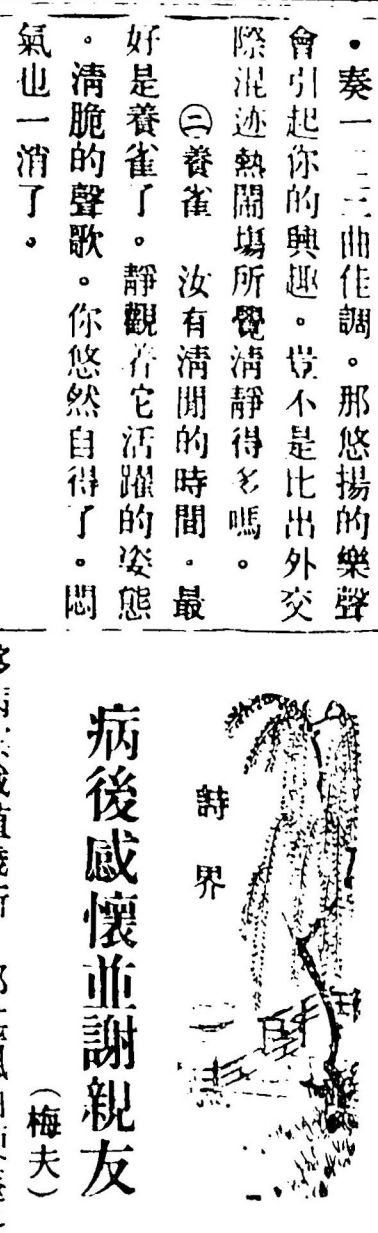 。奏一二三曲佳調。那悠揚的樂聲
會引起你的興趣。豈不是比出外交
際混迹熱鬧塲所覺淸靜得多嗎。
㊁養雀 汝有淸閒的時間。最
好是養雀了。靜觀着它活躍的姿態
。淸脆的聲歌。你悠然自得了。悶
氣也一消了。
詩界
病後感懷並謝親友
（梅夫）